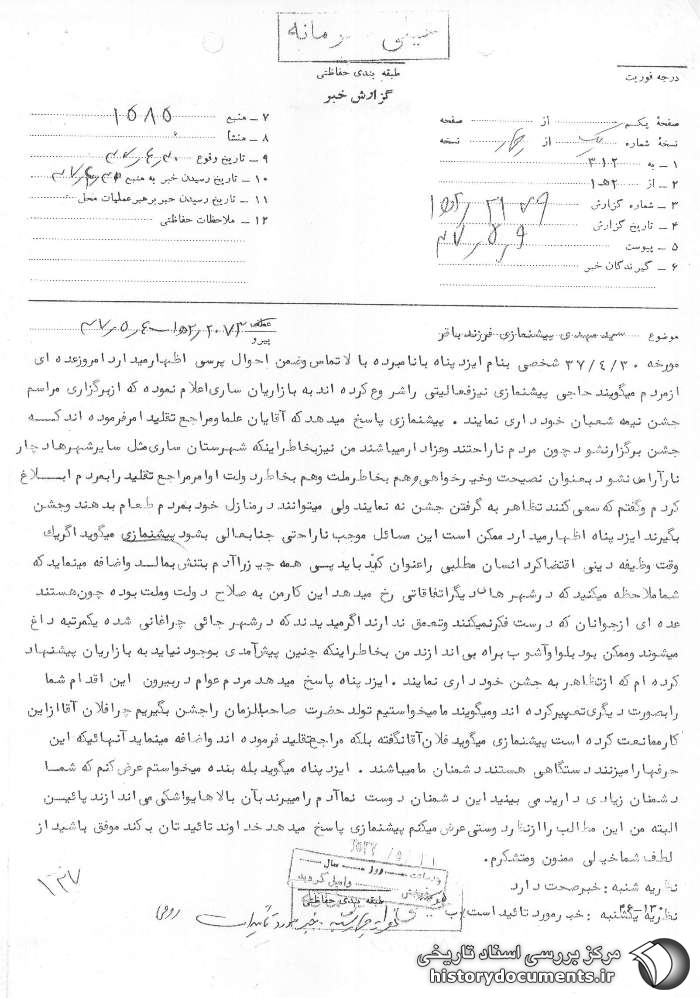 خیلی محرمانه
طبقه بندی حفاظتی
درجه فوریت
گزارش خبر
صفحهٔ یکم از صفحه
نسخهٔ شماره یک از چهار نسخه
۱ ـ به ۳۱۲
۲ ـ از ۲هـ۱
۳ ـ شماره گزارش
۴ ـ تاریخ گزارش ۳۷/۵/۹
۵ ـ پیوست
۶ ـ گیرندگان خبر
۷ ـ منبع ۱۵۸۵
۸ ـ منشأ
۹ ـ تاریخ وقوع ۳۷/۴/۳۰
۱۰ ـ تاریخ رسیدن خبر به منبع
۱۱ ـ تاریخ رسیدن خبر برهبر عملیات محل
۱۲ ـ ملاحظات حفاظتی
موضوع سید مهدی پیشنمازی فرزند باقر
عطف
پیرو ۲۰۷۳/۲هـ۱ـ۳۷/۵/۴
مورخه ۳۷/۴/۳۰ شخصی بنام ایزد پناه با نامبرده بالا تماس وضمن احوال پرسی اظهار میدارد امروز عده ای
از مردم میگویند حاجی پیشنمازی نیز فعالیتی راشروع کرده اند به بازاریان ساری اعلام نموده که از برگزاری مراسم
جشن نیمه شعبان خود داری نمایند . پیشنمازی پاسخ میدهد که آقایان علما ومراجع تقلید امر فرموده اند کــه
جشن برگزار نشود چون مردم ناراحتند و عزادار میباشند من نیز بخاطر اینکه شهرستان ساری مثل سایر شهرها دچار
نارآرامی نشود بعنوان نصیحت وخیرخواهی وهم بخاطر ملت وهم بخاطر دولت اوامر مراجع تقلید را بمردم ابـــلاغ
کردم وگفتم که سعی کنند تظاهر به گرفتن جشن نه نمایند ولی میتوانند در منازل خود بمردم طعام بدهند وجشن
بگیرند ایزد پناه اظهار میدارد ممکن است این مسائل موجب ناراحتی جنابعالی بشود پیشنمازی میگوید اگر یك
وقت وظیفه دینی اقتضا کرد انسان مطلبی را عنوان کند باید پسی همه چیز را آدم بتنش بمالــد واضافه مینماید که
شما ملاحظه میکنید که در شهر های دیگر اتفاقاتی رخ میدهد این کار من به صلاح دولت وملت بوده چون هستند
عده ای از جوانان که درست فکر نمیکنند وتعمق ندارند اگر میدیدند که در شهر جائی چراغانی شده یکمرتبه داغ
میشوند وممکن بود بلوا وآشوب براه بی اندازند من بخاطر اینکه چنین پیش آمدی بوجود نیاید به بازاریان پیشنهاد
کرده ام که از تظاهر به جشن خود داری نمایند . ایزد پناه پاسخ میدهد مردم عوام در بیرون این اقدام شما
را بصورت دیگری تعبیر کرده اند ومیگویند ما میخواستیم تولد حضرت صاحب الزمان را جشن بگیریم چرا فلان آقا از این
کار ممانعت کرده است پیشنمازی میگوید فلان آقا نگفته بلکه مراجع تقلید فرموده اند واضافه مینماید آنهائیکه این
حرفها را میزنند دستگاهی هستند دشمنان ما میباشند . ایزد پناه میگوید بله بنده میخواستم عرض کنم که شمــا
دشمنان زیادی دارید می بینید این دشمنان دوست نما آدم را میبرند بآن بالاها یواشکی می اندازند پائیــن
البته من این مطالب را از نظر دوستی عرض میکنم پیشنمازی پاسخ میدهد خداوند تائیدتان بکند موفق باشید از
لطف شما خیلی ممنون ومتشکرم.
نظریه شنبه : خبر صحت دارد
نظریه یکشنبه : خبر مورد تائید است
نظریه چهارشنبه . خبر مورد تائید است
روحی
۱۳۷
روز سال
واصل گردید
طبقه بندی حفاظتی
مرکز بررسی اسناد تاریخی
historydocuments.ir